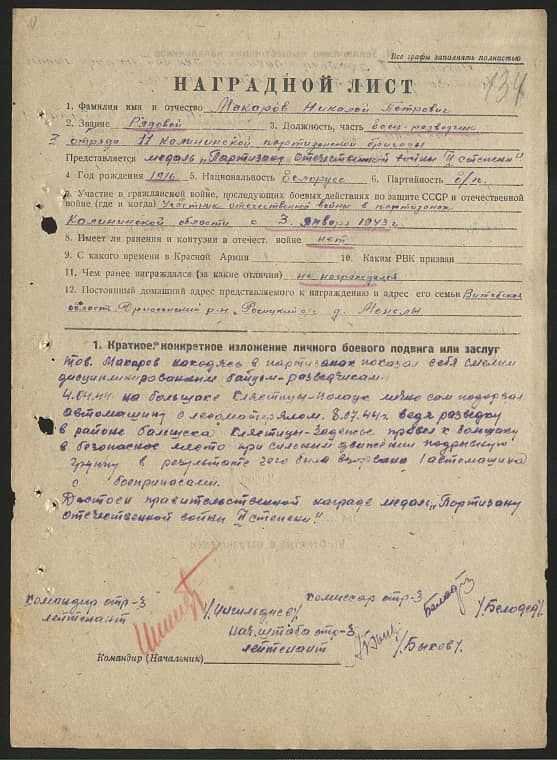 Все графы заполнять полностью
134
НАГРАДНОЙ ЛИСТ
1. Фамилия имя и отчество Макаров Николай Петрович
2. Звание Рядовой 3. Должность, часть боец-разведчик
отряда 11 Калининской партизанской бригады
Представляется медаль „Партизану отечественной войны II степени"
4. Год рождения 1916 5. Национальность Белорусс 6. Партийность б/п.
7. Участие в гражданской войне, последующих боевых действиях по защите СССР и отечественной
войне (где и когда) Участник отечественной войны в партизанах
Калининской области с 3. января 1943 г.
8. Имеет ли ранения и контузии в отечест. войне нет
9. С какого времени в Красной Армии 10. Каким РВК призван
11. Чем ранее награждался (за какие отличия) не награждался
12. Постоянный домашний адрес представляемого к награждению и адрес его семьи Витебская
область д.
1. Краткое, конкретное изложение личного боевого подвига или заслуг
тов. Макаров находясь в партизанах показал себя смелым
дисциплинированным бойцом-разведчиком.
4.04.44 на большаке Клястицы-Полоцк лично сам подорвал
автомашину с лесоматерялом. 8.07.44 г. ведя разведку
в районе большака Клястицы- провел к большаку
в безопасное место при сильном движении подрывную
группу в результате чего была 1 автомашина
с боеприпасами.
Достоен правительственной награде медаль „Партизану
отечественной войны II степени"
командир отр-3 комиссар отр-3
лейтенант /Белодед/
нач. штаба отр-3
лейтенант /Быков/.
Командир (Начальник)